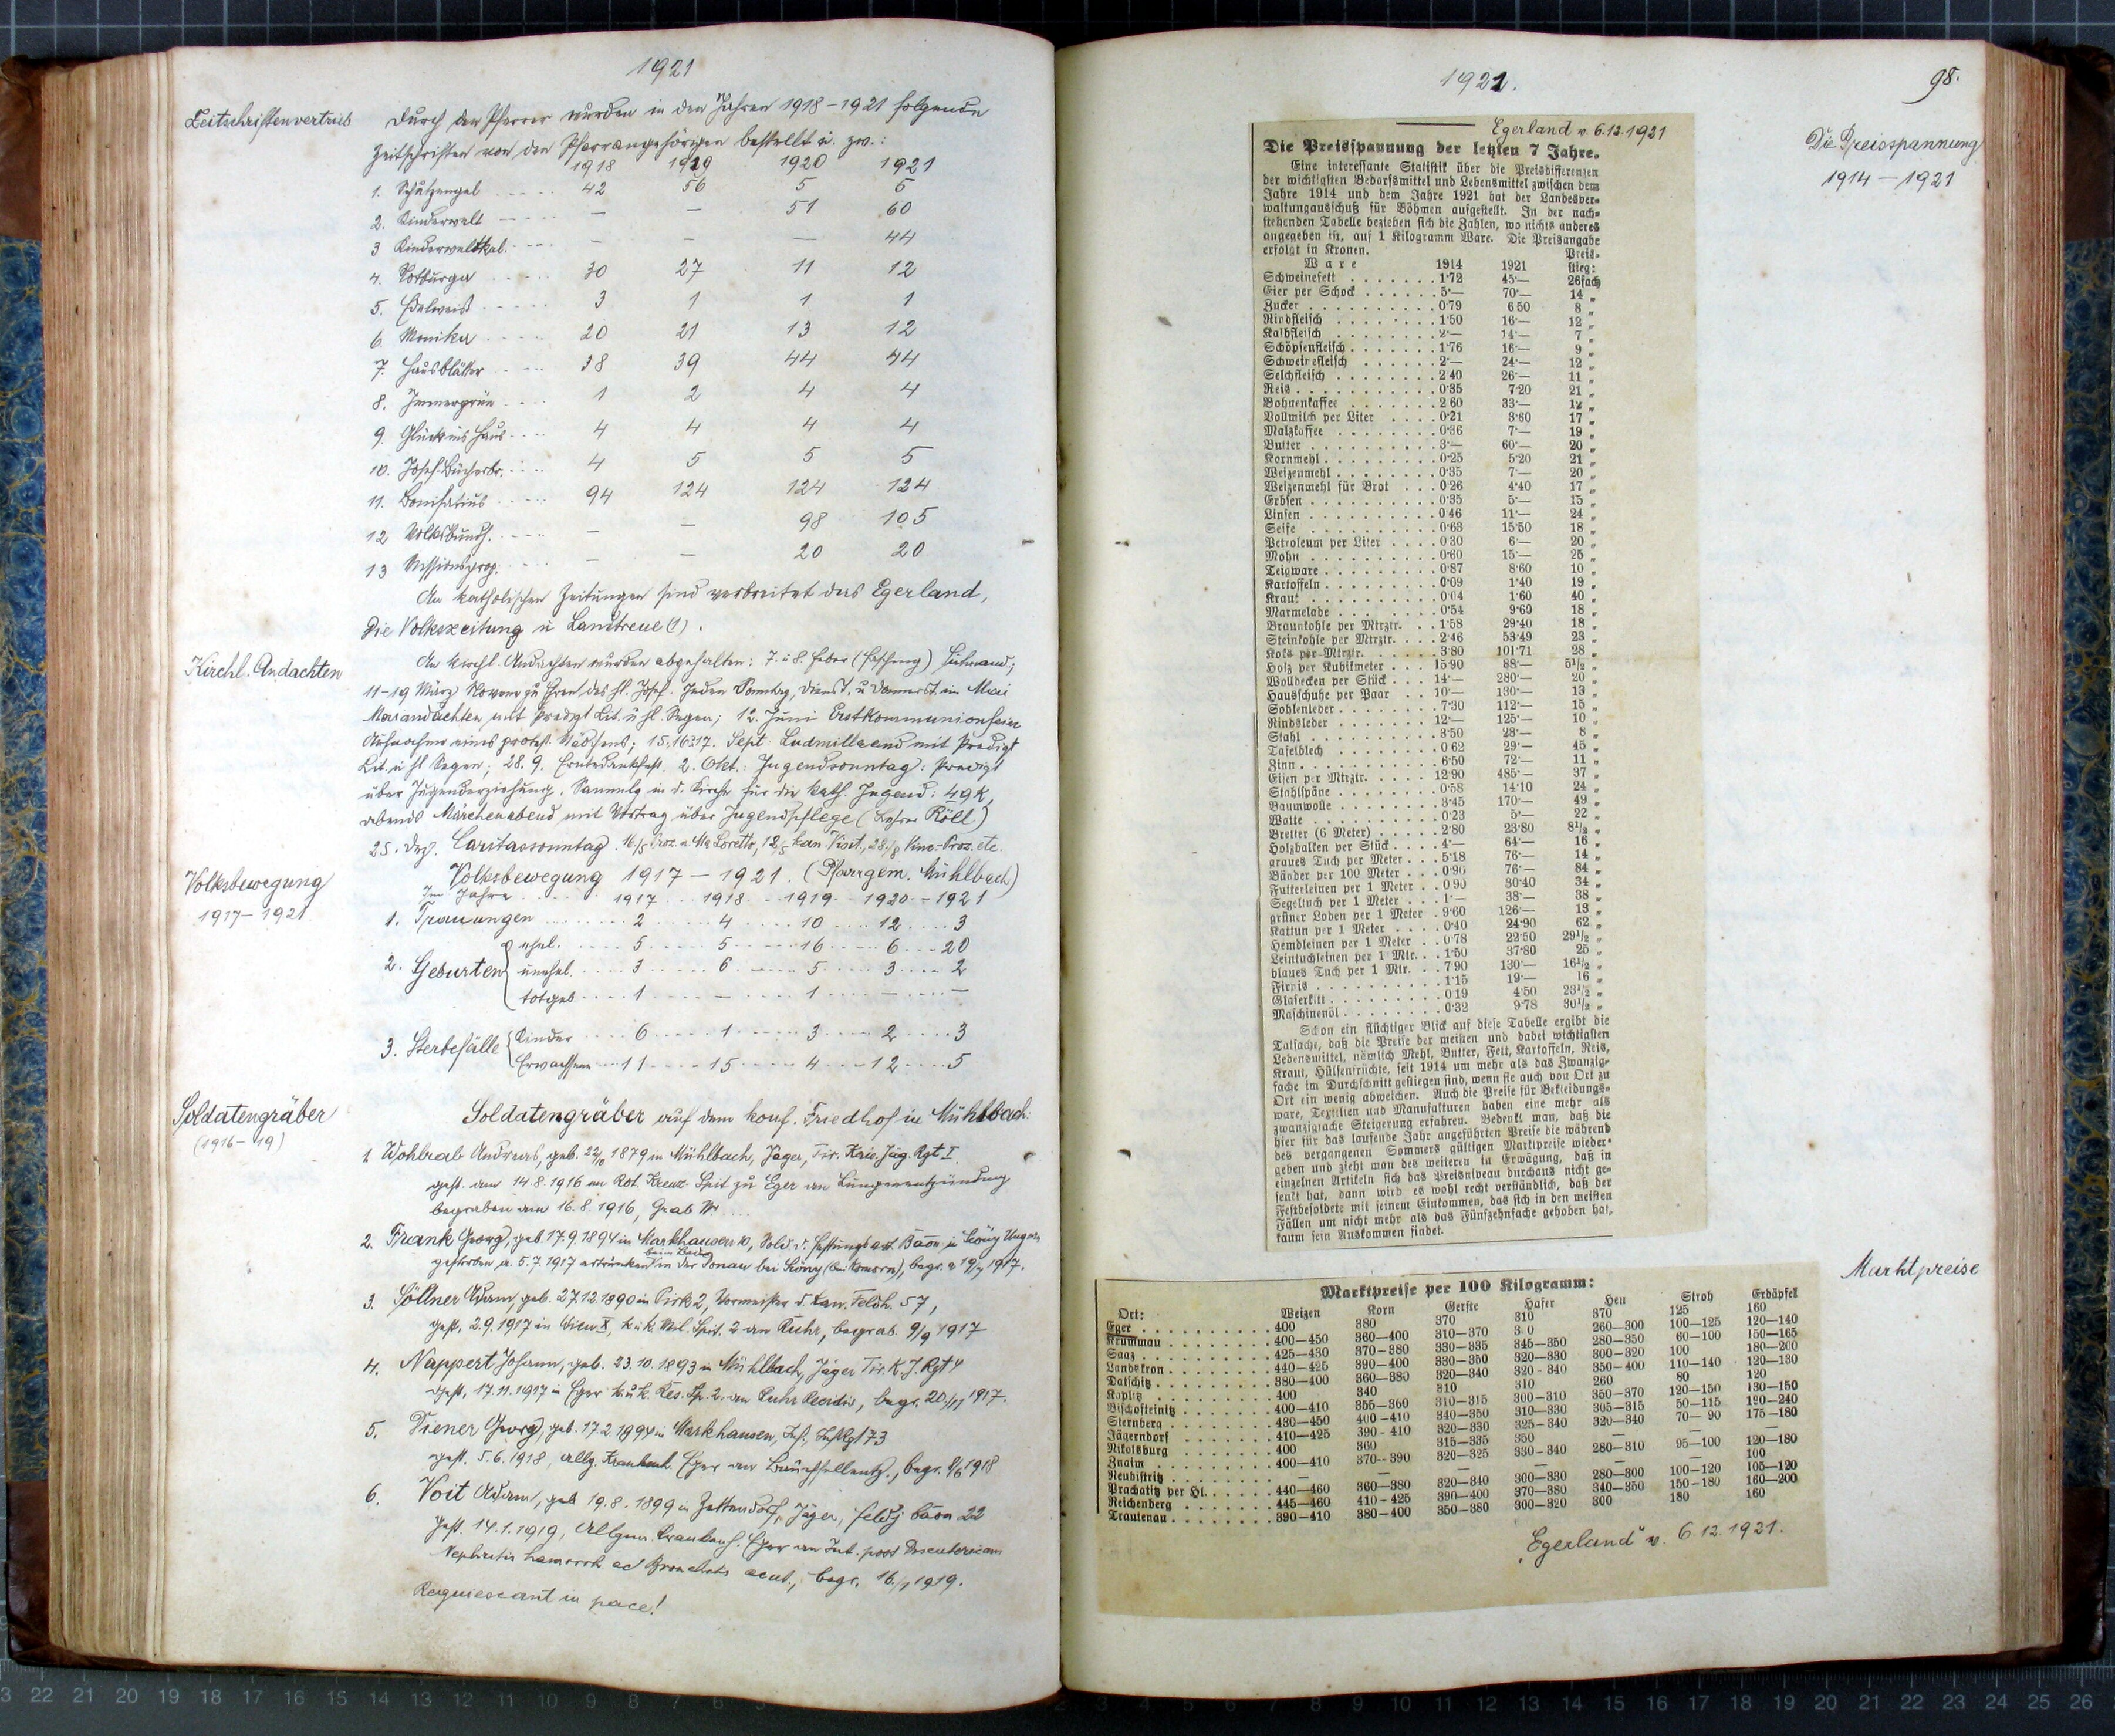 1921
Zeitschriftenvertrieb
Durch den Pfarrer wurden in den Jahren 1918-1921 folgende
Zeitschriften von den Pfarrangehörigen bestellt u. zw.:
1918 1919 1920 1921
1. Schutzengel 42 56 5 5
2. Kinderwelt — — 51 60
3 Kinderweltkal. — — — 44
4. Notburga 30 27 11 12
5. Edelweiß 3 1 1 1
6. Monika 20 21 13 12
7. Hausblätter 38 39 44 44
8. Immergrün 1 2 4 4
9. Glück ins Haus 4 4 4 4
10. Josef-Bücherbr. 4 5 5 5
11. Bonifatius 94 124 124 124
12 Volksbundh. — — 98 105
13 Missionsprop. — — 20 20
An katholischen Zeitungen sind verbreitet das Egerland,
die Volkszeitung u Landtreue (1).
Kirchl. Andachten
An kirchl. Andachten wurden abgehalten: 7. u 8. Feber (Fasching)
11-19 März Novene zu Ehren des hl. Josef. Jeden Sonntag, Dienst. u Donnerst. im Mai
Maiandachten mit Predigt Lit. u hl. Segen; 12. Juni Erstkommunionfeier
Aufnahme eines protest. Mädchens; 15. 16. 17. Sept Ludmilla and mit Predigt
Lit. u hl Segen; 28. 9. Erntedankfest. 2. Okt.: Jugendsonntag: Predigt
über Jugenderziehung. Sammlg in d. Kirche für die kath. Jugend: 49 K,
abends Märchenabend mit Vortrag über Jugendpflege (Lehrer Röll)
25. Dez. Caritassonntag. 16/5 Proz. n. Ma Loretto, 12/5 kan. Visit., 28./8 Vinc.-Proz. etc.
Volksbewegung
1917-1921
Volksbewegung 1917 - 1921. (Pfarrgem. Mühlbach)
Im Jahre 1917 1918 1919 1920 - 1921
1. Trauungen 2 4 10 12 3
2. Geburten
ehel. 5 5 16 6 20
unehel. 3 6 5 3 2
totgeb 1 - 1 - -
3. Sterbefälle
Kinder 6 1 3 2 3
Erwachsene 11 15 4 12 5
Soldatengräber
(1916-19)
Soldatengräber auf dem konf. Friedhof in Mühlbach:
1 Wohlrab Andreas, geb. 22/10 1879 in Mühlbach, Jäger, Tir. Kais. Jäg. Rgt I.
gest. am 14.8.1916 im Rot. Kreuz-Spit zu Eger an Lungenentzündung
begraben am 16.8.1916, Grab Nr. ....
2. Frank Georg, geb. 17.9 1894 in Markhausen 10, Sold. d. Festungs art. Baon in Szöny Ungarn
beim Baden
gestorben a. 5.7.1917 ertrunken in der Donau bei Szöny (bei Komorn), begr. a 19/7 1917.
3. Söllner Adam, geb. 27.12.1890 in Pirk 2, Vormeister d. Kan. Feldh. 57,
gest. 2.9.1917 in Wien X, k u k. Mil. Spit. 2 an Ruhr, begrab. 9/9 1917
4. Nappert Johann, geb. 23.10.1893 in Mühlbach, Jäger Tir. K. J. Rgt 4
gest. 17.11.1917 in Eger k. u k. Res. Sp. 2. an Ruhr Recidiv, begr. 20/11 1917.
5. Tiener Georg, geb. 17.2 1894 in Markhausen, Inf., Inf. Rgt 73
gest. 5.6.1918, allg. Krankenh. Eger an Bauchfellentz., begr. 8/6 1918
6. Voit Adam, geb 19.8.1899 in Zettendorf, Jäger, Feldj baon 22
gest. 14.1.1919, Allgem. Krankenh. Eger an post
Nephritis haemorrh ac Bronchitis acut., begr. 16./1 1919.
Requiescant in pace!
1921.
98.
Egerland v. 6.12.1921
Die Preisspannung
1914 - 1921
Die Preisspannung der letzten 7 Jahre.
Eine interessante Statistik über die Preisdifferenzen
der wichtigsten Bedarfsmittel und Lebensmittel zwischen dem
Jahre 1914 und dem Jahre 1921 hat der Landesver-
waltungausschuß für Böhmen aufgestellt. In der nach-
stehenden Tabelle beziehen sich die Zahlen, wo nichts anderes
angegeben ist, auf 1 Kilogramm Ware. Die Preisangabe
erfolgt in Kronen.
Ware 1914 1921 Preis-
stieg:
Schweinefett 1·72 45·— 26fach
Eier per Schock 5·— 70·— 14 „
Zucker 0·79 6 50 8 „
Rindfleisch 1·50 16·— 12 „
Kalbfleisch 2·— 14·— 7 „
Schöpsenfleisch 1·76 16·— 9 „
Schweinefleisch 2·— 24·— 12 „
Selchfleisch 2 40 26·— 11 „
Reis 0·35 7·20 21 „
Bohnenkaffee 2 60 33·— 12 „
Vollmilch per Liter 0·21 3·60 17 „
Malzkaffee 0·36 7·— 19 „
Butter 3·— 60·— 20 „
Kornmehl 0·25 5·20 21 „
Weizenmehl 0·35 7·— 20 „
Weizenmehl für Brot 0 26 4·40 17 „
Erbsen 0·35 5·— 15 „
Linsen 0 46 11·— 24 „
Seife 0·63 15·50 18 „
Petroleum per Liter 0 30 6·— 20 „
Mohn 0·60 15·— 25 „
Teigware 0·87 8·60 10 „
Kartoffeln 0·09 1·40 19 „
Kraut 0 04 1·60 40 „
Marmelade 0·54 9·60 18 „
Braunkohle per Mtrztr. 1·58 29·40 18 „
Steinkohle per Mtrztr. 2·46 53·49 23 „
Koks per Mtrztr. 3·80 101·71 28 „
Holz per Kubikmeter 15·90 88·— 5½ „
Wolldecken per Stück 14·— 280·— 20 „
Hausschuhe per Paar 10·— 130·— 13 „
Sohlenleder 7·30 112·— 15 „
Rindsleder 12·— 125·— 10 „
Stahl 3·50 28·— 8 „
Tafelblech 0 62 29·— 45 „
Zinn 6·50 72·— 11 „
Eisen per Mtrztr. 12·90 485·— 37 „
Stahlspäne 0·58 14·10 24 „
Baumwolle 3·45 170·— 49 „
Watte 0·23 5·— 22 „
Bretter (6 Meter) 2·80 23·80 8½ „
Holzbalken per Stück 4·— 64·— 16 „
graues Tuch per Meter 5·18 76·— 14 „
Bänder per 100 Meter 0·90 76·— 84 „
Futterleinen per 1 Meter 0 90 30·40 34 „
Segeltuch per 1 Meter 1·— 38·— 38 „
grüner Loden per 1 Meter 9·60 126·— 13 „
Kattun per 1 Meter 0·40 24·90 62 „
Hemdleinen per 1 Meter 0·78 22·50 29½ „
Leintuchleinen per 1 Mtr. 1·50 37·80 25 „
blaues Tuch per 1 Mtr. 7·90 130·— 16½ „
Firnis 1·15 19·— 16 „
Glaserkitt 0·19 4·50 23½ „
Maschinenöl 0·32 9·78 30½ „
Schon ein flüchtiger Blick auf diese Tabelle ergibt die
Tatsache, daß die Preise der meisten und dabei wichtigsten
Lebensmittel, nämlich Mehl, Butter, Fett, Kartoffeln, Reis,
Kraut, Hülsenfrüchte, seit 1914 um mehr als das Zwanzig-
fache im Durchschnitt gestiegen sind, wenn sie auch von Ort zu
Ort ein wenig abweichen. Auch die Preise für Bekleidungs-
ware, Textilien und Manufakturen haben eine mehr als
zwanzigfache Steigerung erfahren. Bedenkt man, daß die
hier für das laufende Jahr angeführten Preise die während
des vergangenen Sommers gültigen Marktpreise wieder-
geben und zieht man des weiteren in Erwägung, daß in
einzelnen Artikeln sich das Preisniveau durchaus nicht ge-
senkt hat, dann wird es wohl recht verständlich, daß der
Festbesoldete mit seinem Einkommen, das sich in den meisten
Fällen um nicht mehr als das Fünfzehnfache gehoben hat,
kaum sein Auskommen findet.
Marktpreise
Marktpreise per 100 Kilogramm:
Ort: Weizen Korn Gerste Hafer Heu Stroh Erdäpfel
Eger 400 380 370 310 370 125 160
Krummau 400—450 360—400 310—370 260—300 100—125 120—140
Saaz 425—430 370—380 330—335 345—350 280—350 60—100 150—165
Landskron 440—425 390—400 330—350 320—330 300—320 100 180—200
Datschitz 380—400 360—380 320—340 320—340 350—400 110—140 120—130
Kaplitz 400 340 310 310 260 80 120
Bischofteinitz 400—410 355—360 310—315 300—310 350—370 120—150 130—150
Sternberg 430—450 400—410 340—350 310—330 305—315 50—115 190—240
Jägerndorf 410—425 390—410 320—330 325—340 320—340 70—90 175—180
Nikolsburg 400 360 315—335 350 — —
Znaim 400—410 370—390 320—325 330—340 280—310 95—100 120—180
Neubistritz — — — — — — 100
Prachatitz per Hl. 440—460 360—380 320—340 300—330 280—300 100—120 105—120
Reichenberg 445—460 410—425 390—400 370—380 340—350 150—180 160—200
Trautenau 390—410 380—400 350—380 300—320 300 180 160
„Egerland" v. 6.12.1921.
3 22 21 20 19 18 17 16 15 14 13 12 11 10 9 8 7 6 5
3 4 5 6 7 8 9 10 11 12 13 14 15 16 17 18 19 20 21 22 23 24 25 26